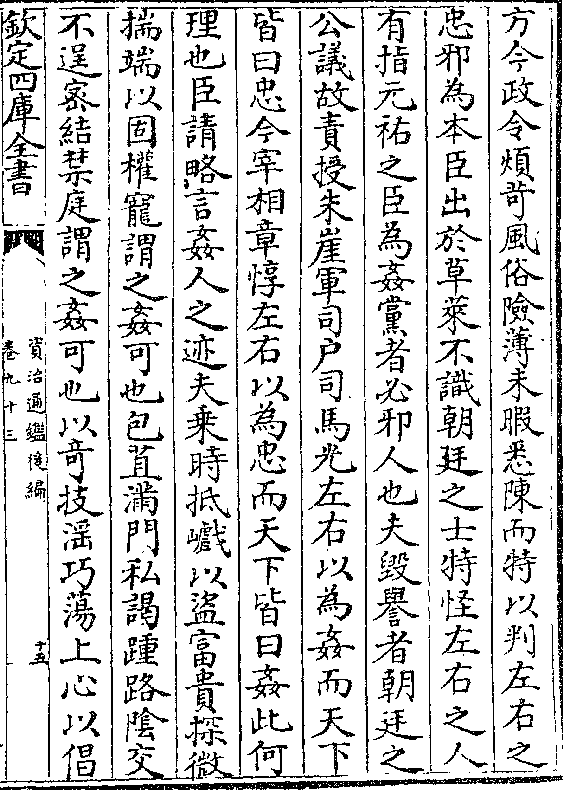 方今政令煩苛風俗險薄未暇悉陳而特以判左右之
忠邪為本臣出於草萊不識朝廷之士特怪左右之人
有指元祐之臣為姦黨者必邪人也夫毀譽者朝廷之
公議故責授朱崖軍司户司馬光左右以為姦而天下
皆曰忠今宰相章惇左右以為忠而天下皆曰姦此何
理也臣請略言姦人之迹夫乗時抵巇以盜富貴探微
揣端以固權寵謂之姦可也包苴滿門私謁踵路陰交
不逞宻結禁庭謂之姦可也以奇技滛巧蕩上心以倡
欽定四庫全書
資治通鑑後編
卷九十三
十五